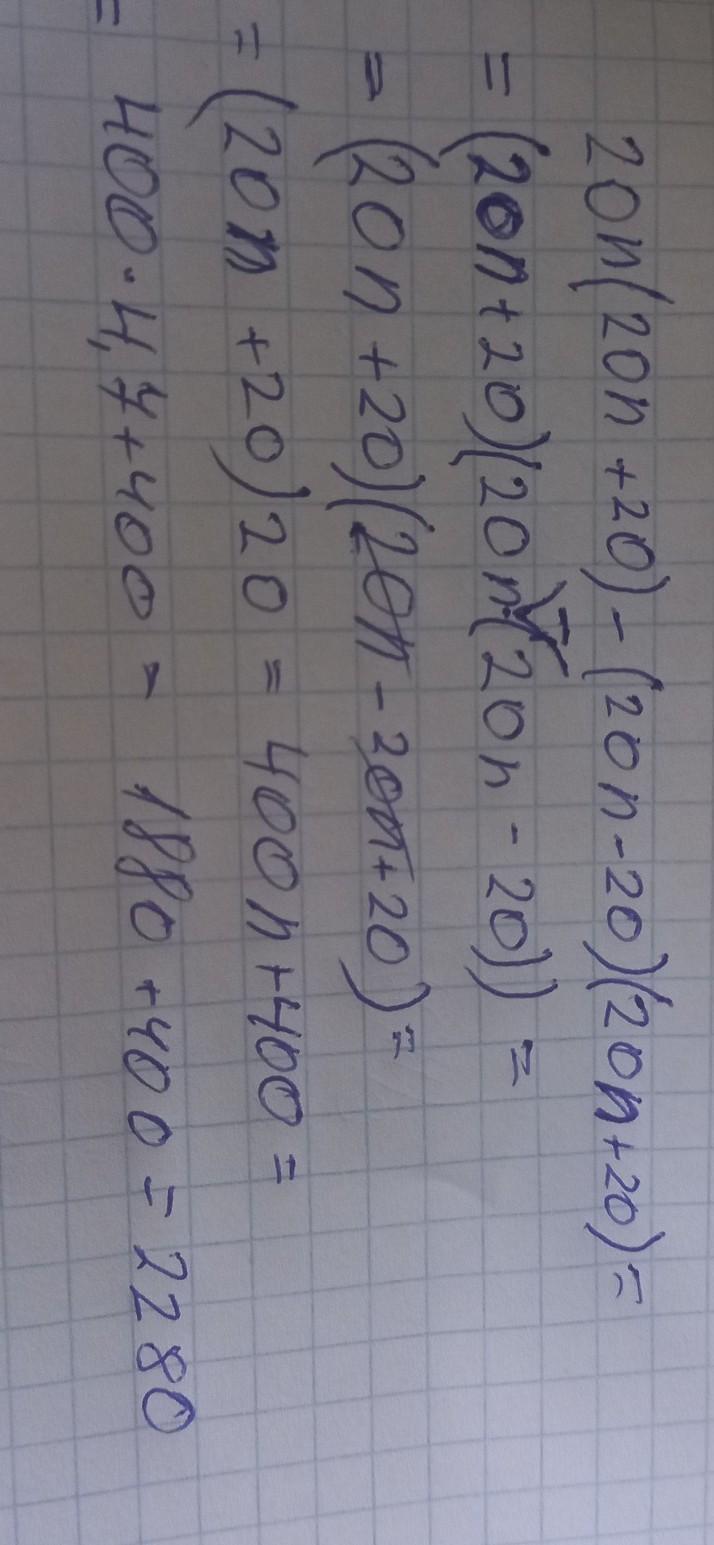 20n(20n+20)-(20n-20)(20n+20)=
=(20n+20)(20n-(20n-20))=
=(20n+20)(20n-20n+20)=
=(20n+20)20=400n+400=
=400·4,7+400=1880+400=2280